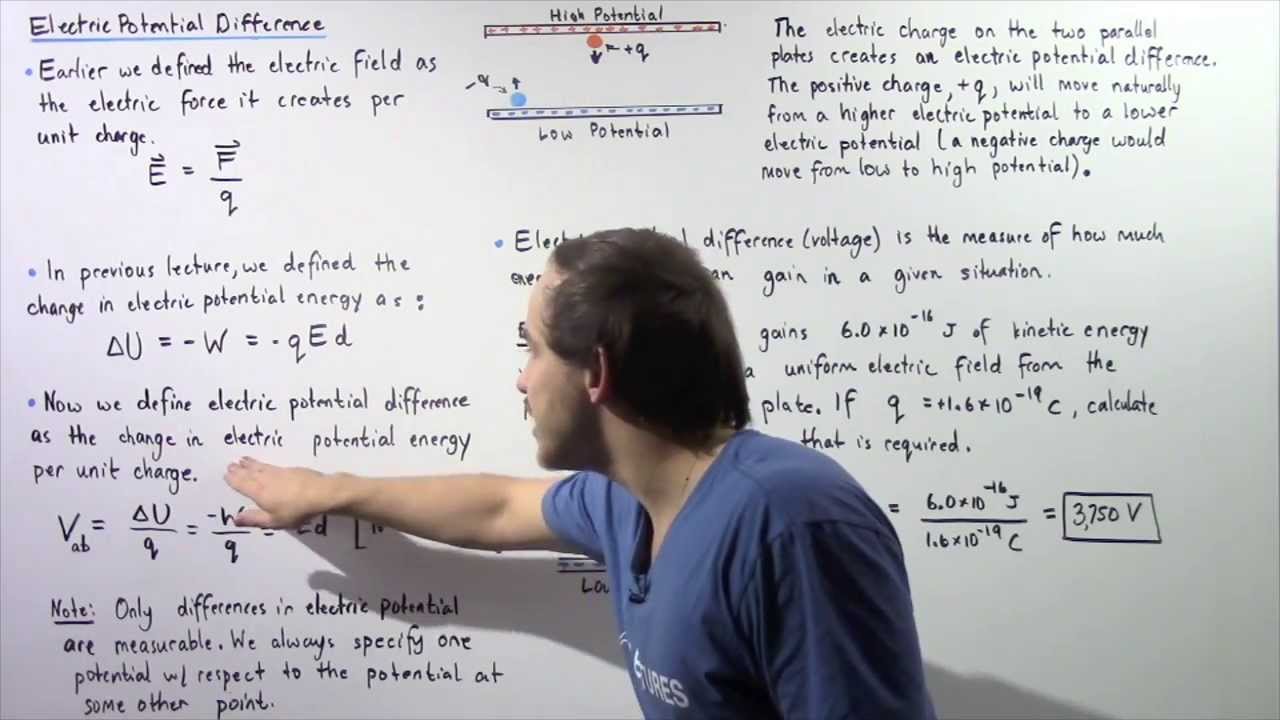 Electric Potential Difference
• Earlier we defined the electric field as
the electric force it creates per
unit charge.
E⃗ = F⃗ / q
• In previous lecture, we defined the
change in electric potential energy as:
ΔU = -W = -qEd
• Now we define electric potential difference
as the change in electric potential energy
per unit charge.
V_ab = ΔU / q = -W / q = d
Note: Only differences in electric potential
are measurable. We always specify one
potential w/ respect to the potential at
some other point.
High Potential
+q
-q
Low Potential
The electric charge on the two parallel
plates creates an electric potential difference.
The positive charge, +q, will move naturally
from a higher electric potential to a lower
electric potential (a negative charge would
move from low to high potential).
• difference (voltage) is the measure of how much
gain in a given situation.
gains 6.0×10^-16 J of kinetic energy
a uniform electric field from the
plate. If q = +1.6×10^-19 C, calculate
that is required.
= 6.0×10^-16 J / 1.6×10^-19 C = 3,750 V
TURES